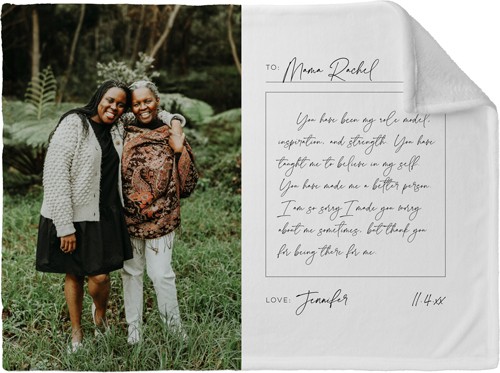 TO: Mama Rachel
You have been my role model,
inspiration, and strength. You have
taught me to believe in my self.
You have made me a better person.
I am so sorry I made you worry
about me sometimes, but thank you
for being there for me.
LOVE: Jennifer 11.4.xx